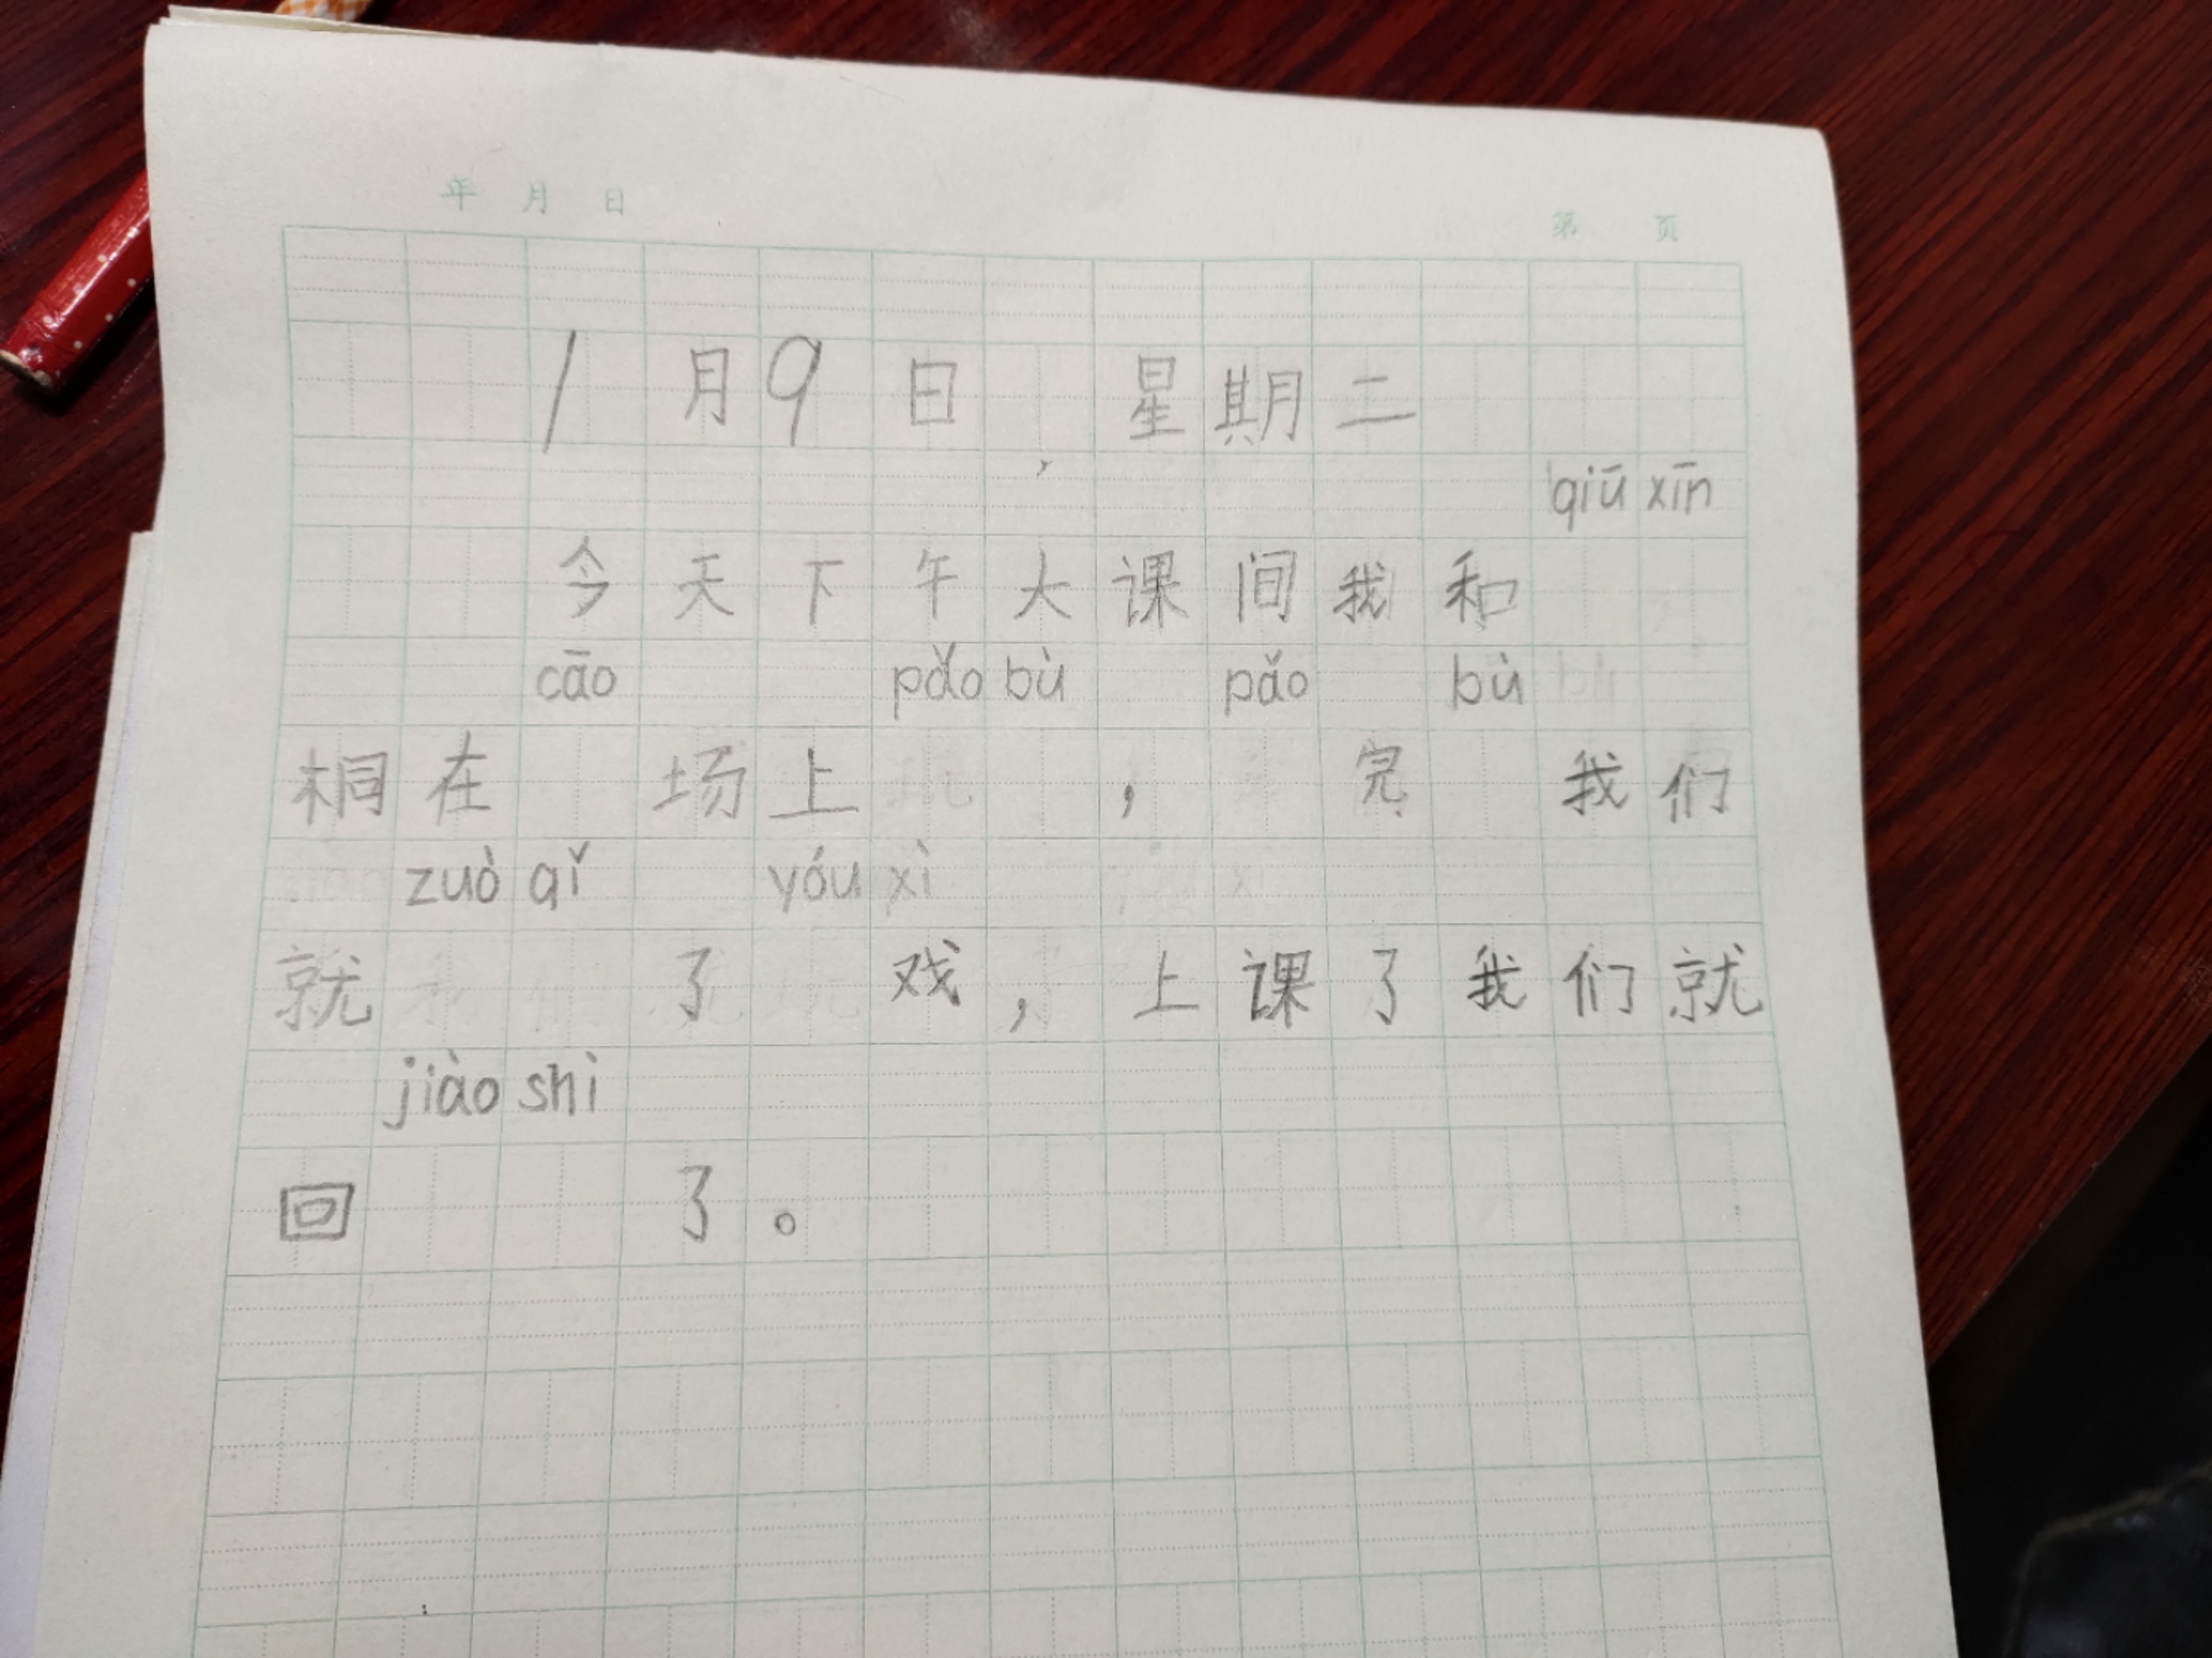 年 月 日
第 页
1月9日, 星期二
qiū xīn
今天下午大课间我和
cāo pǎo bù pǎo bù
桐在 场上 , 完 我们
zuò qǐ yóu xì
就 了 戏,上课了我们就
jiào shì
回 了。